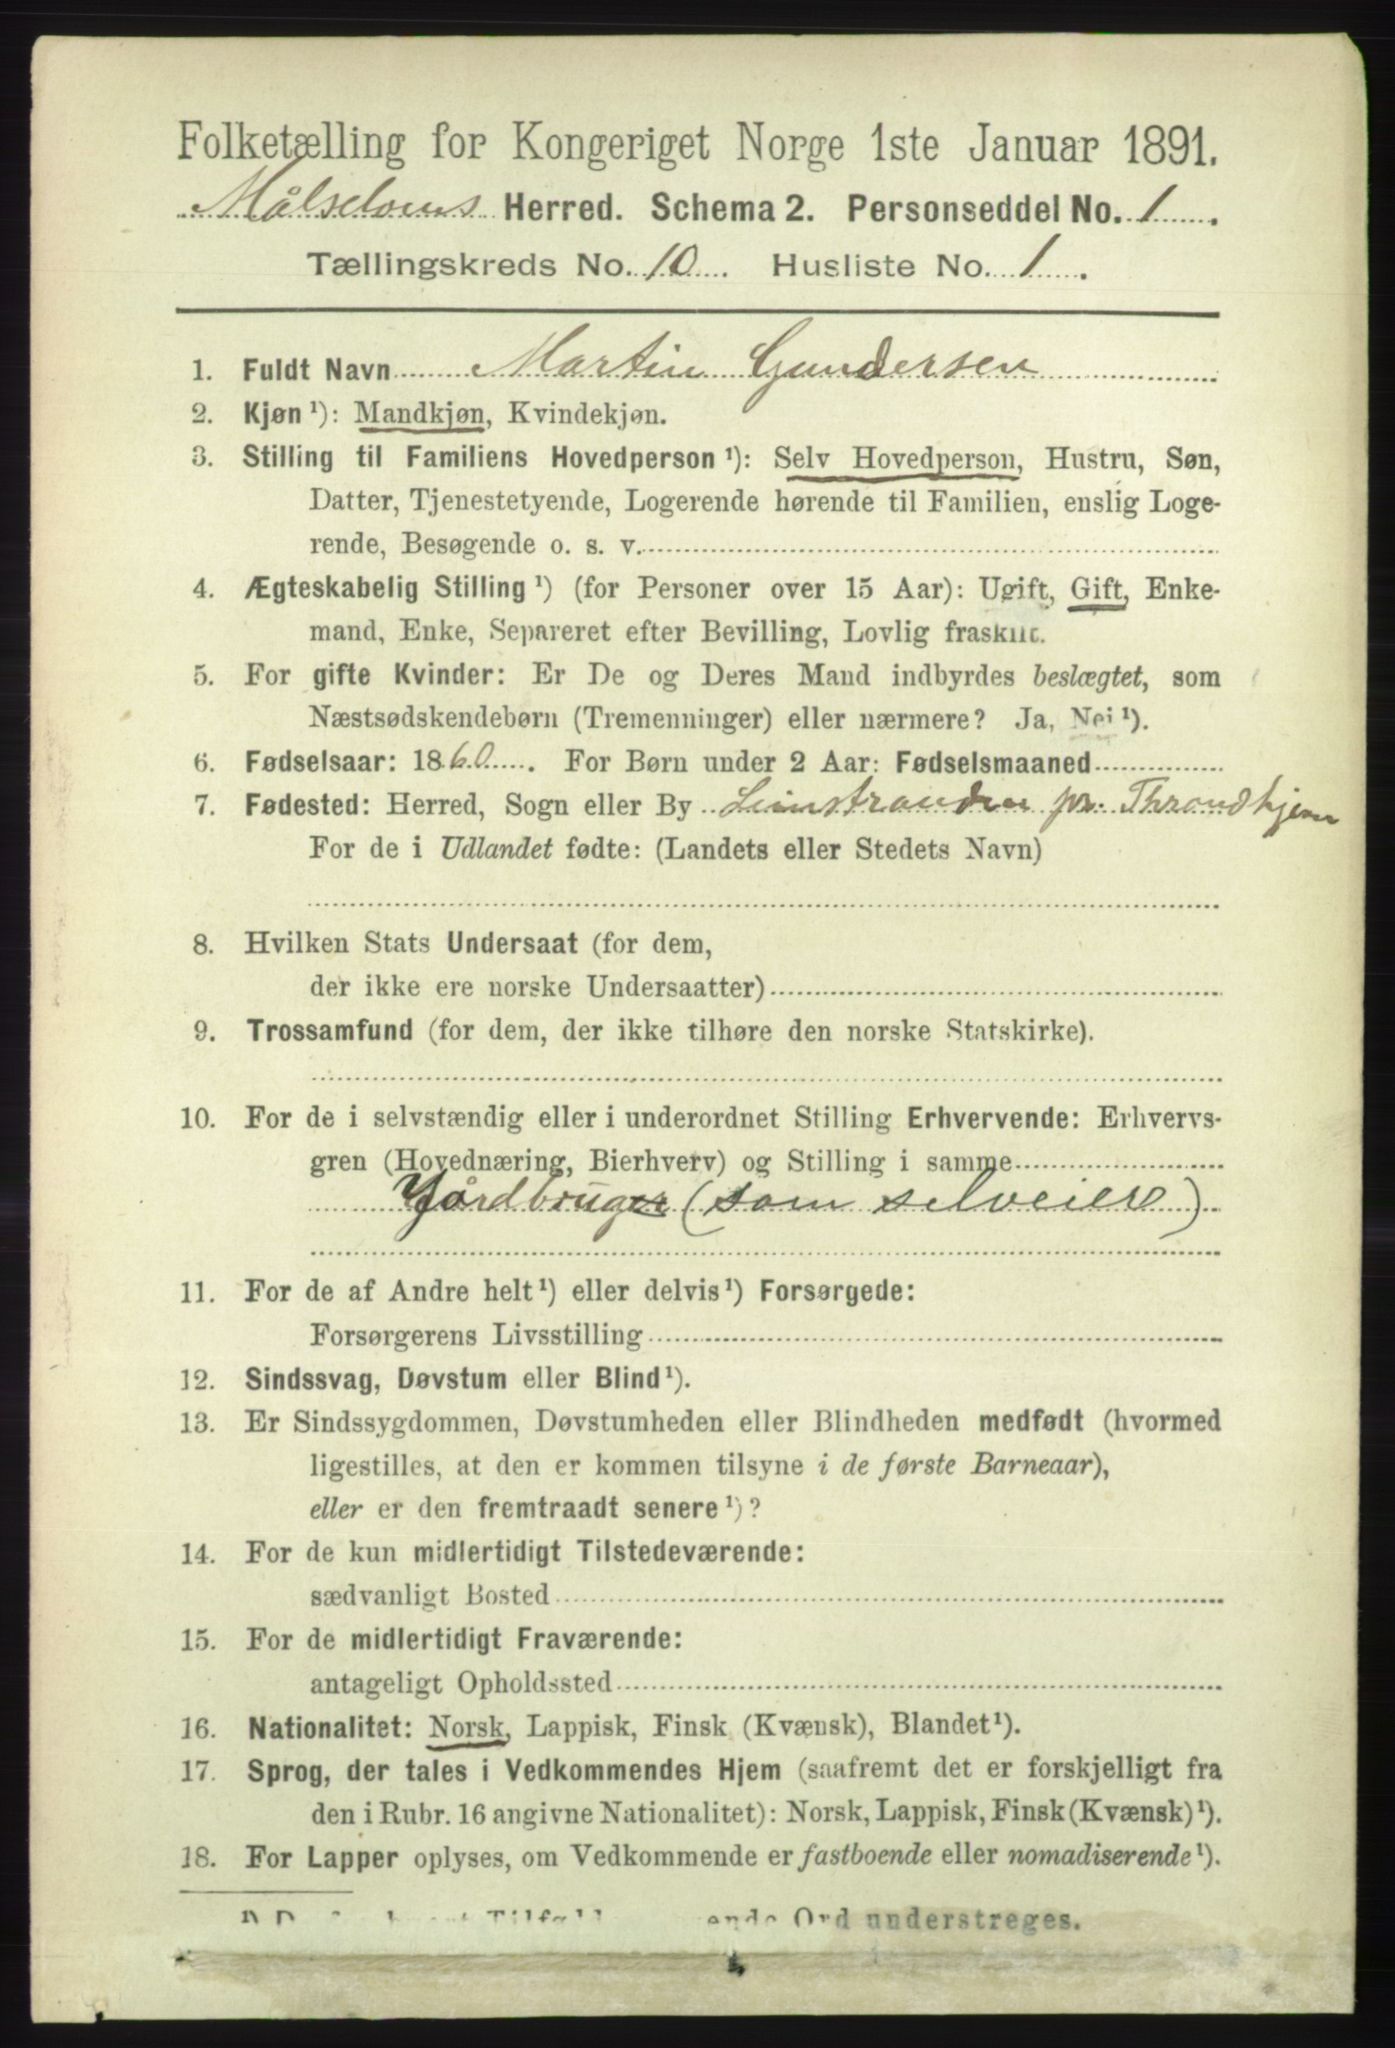 Folketælling for Kongeriget Norge 1ste Januar 1891.
Målselvens Herred. Schema 2. Personseddel No. 1.
Tællingskreds No. 10. Husliste No. 1.
1. Fuldt Navn Martin Gundersen
2. Kjøn¹): Mandkjøn, Kvindekjøn.
3. Stilling til Familiens Hovedperson¹): Selv Hovedperson, Hustru, Søn,
Datter, Tjenestetyende, Logerende hørende til Familien, enslig Loge-
rende, Besøgende o. s. v.
4. Ægteskabelig Stilling¹) (for Personer over 15 Aar): Ugift, Gift, Enke-
mand, Enke, Separeret efter Bevilling, Lovlig fraskilt.
5. For gifte Kvinder: Er De og Deres Mand indbyrdes beslægtet, som
Næstsødskendebørn (Tremenninger) eller nærmere? Ja, Nei¹).
6. Fødselsaar: 1860. For Børn under 2 Aar: Fødselsmaaned
7. Fødested: Herred, Sogn eller By Leinstranden pr. Throndhjem
For de i Udlandet fødte: (Landets eller Stedets Navn)
8. Hvilken Stats Undersaat (for dem,
der ikke ere norske Undersaatter)
9. Trossamfund (for dem, der ikke tilhøre den norske Statskirke).
10. For de i selvstændig eller i underordnet Stilling Erhvervende: Erhvervs-
gren (Hovednæring, Bierhverv) og Stilling i samme
Gårdbruger (som selveier)
11. For de af Andre helt¹) eller delvis¹) Forsørgede:
Forsørgerens Livsstilling
12. Sindssvag, Døvstum eller Blind¹).
13. Er Sindssygdommen, Døvstumheden eller Blindheden medfødt (hvormed
ligestilles, at den er kommen tilsyne i de første Barneaar),
eller er den fremtraadt senere¹)?
14. For de kun midlertidigt Tilstedeværende:
sædvanligt Bosted
15. For de midlertidigt Fraværende:
antageligt Opholdssted
16. Nationalitet: Norsk, Lappisk, Finsk (Kvænsk), Blandet¹).
17. Sprog, der tales i Vedkommendes Hjem (saafremt det er forskjelligt fra
den i Rubr. 16 angivne Nationalitet): Norsk, Lappisk, Finsk (Kvænsk)¹).
18. For Lapper oplyses, om Vedkommende er fastboende eller nomadiserende¹).
Ord understreges.